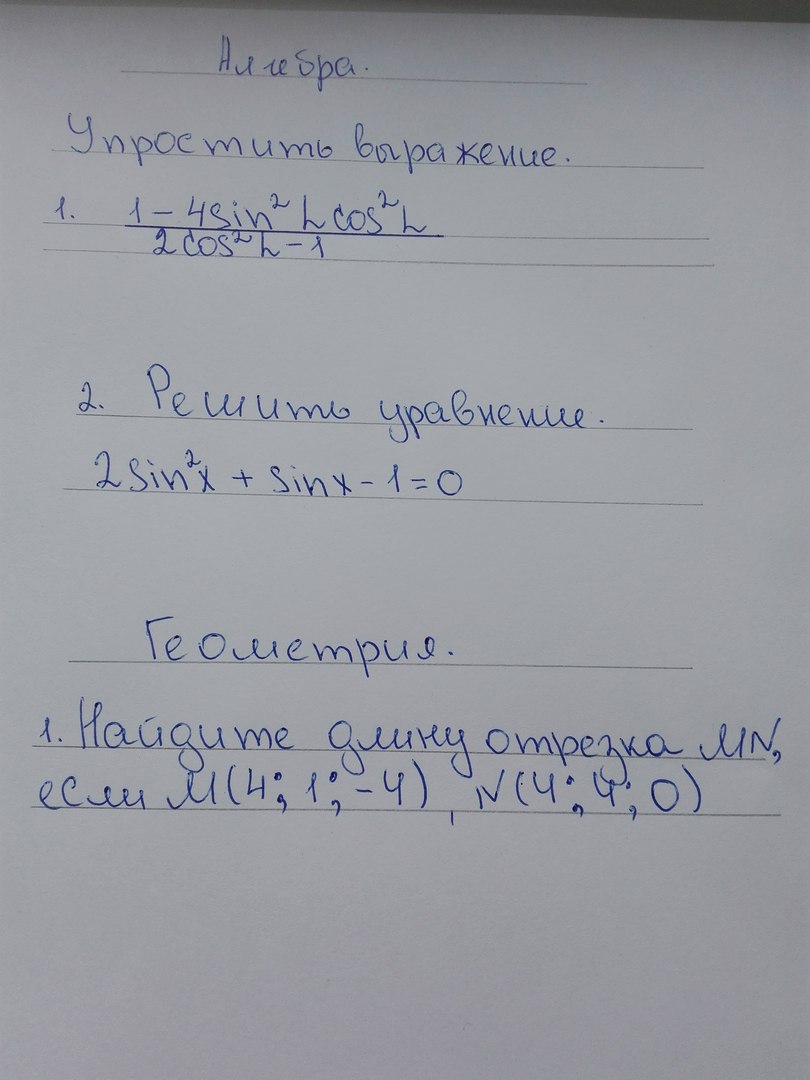 Алгебра.
Упростить выражение.
1. 1 - 4sin² L cos² L
2cos² L - 1
2. Решить уравнение.
2sin²x + sinx - 1 = 0
Геометрия.
1. Найдите длину отрезка MN,
если M(4; 1; -4), N(4; 4; 0)